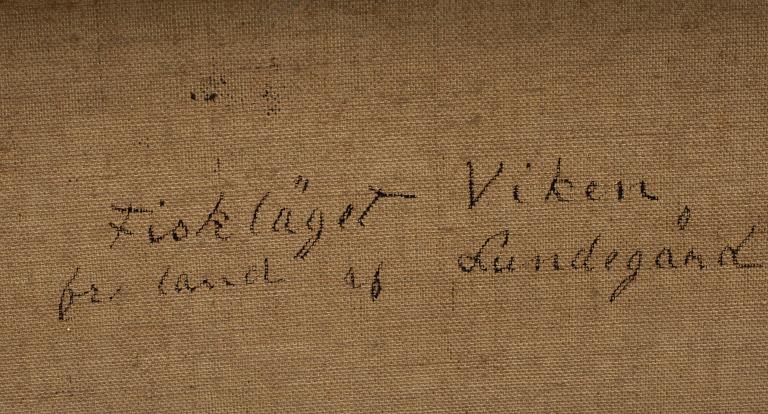 Fiskläget Viken
fr. land af Lundegård